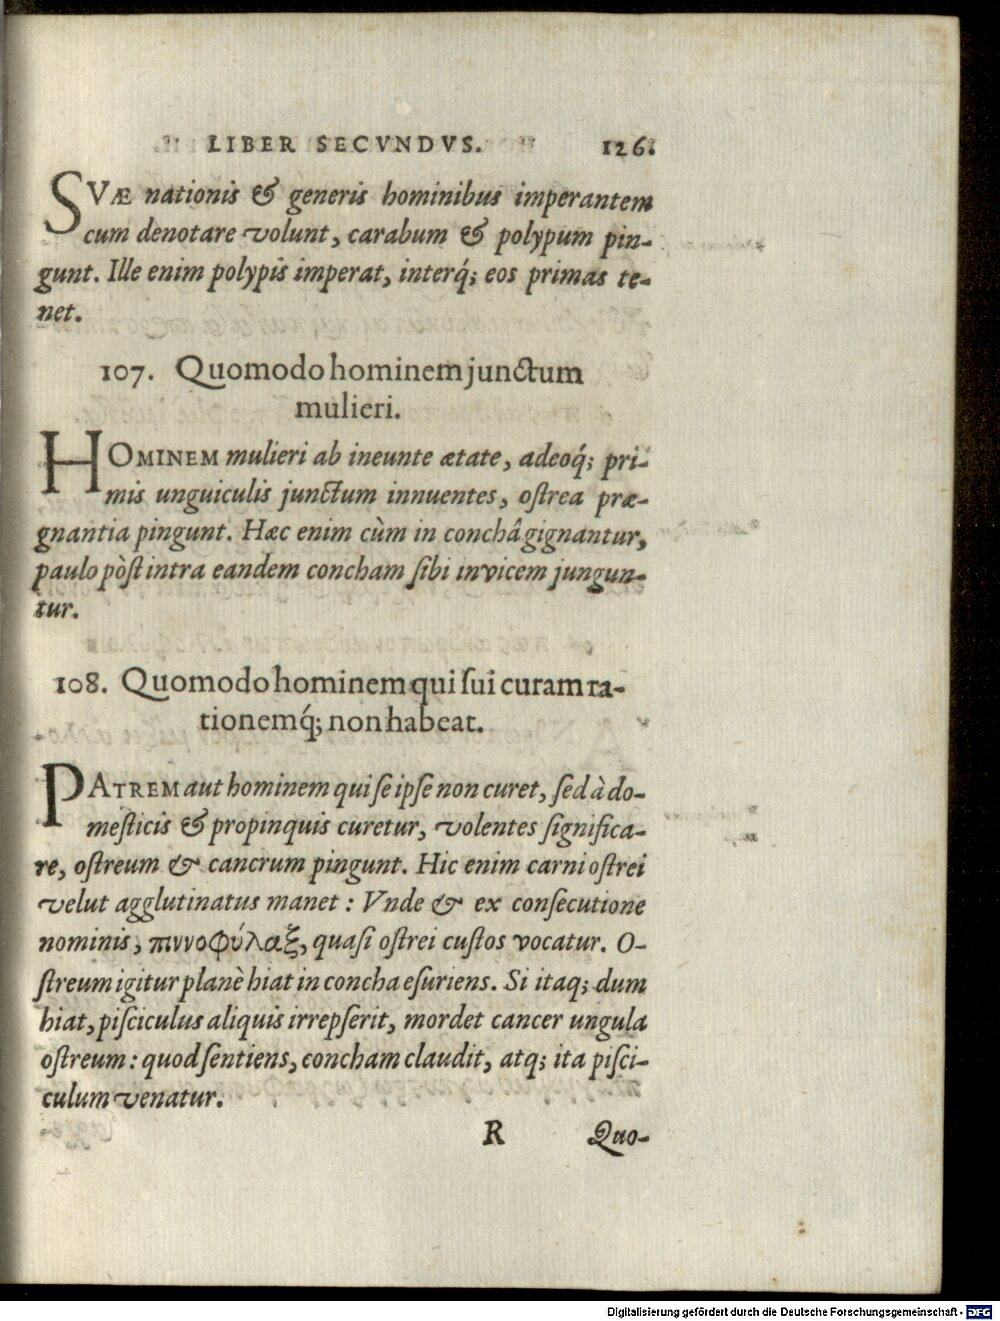 LIBER SECVNDVS. 126.
SVÆ nationis & generis hominibus imperantem
cum denotare volunt, carabum & polypum pin-
gunt. Ille enim polypis imperat, interq́; eos primas te-
net.
107. Quomodo hominem junctum
mulieri.
HOMINEM mulieri ab ineunte ætate, adeoq́; pri-
mis unguiculis junctum innuentes, oſtrea præ-
gnantia pingunt. Hæc enim cùm in conchâ gignantur,
paulo pòſt intra eandem concham ſibi invicem jungun-
tur.
108. Quomodo hominem qui ſui curam ra-
tionemq́; non habeat.
PATREM aut hominem qui ſe ipſe non curet, ſed à do-
meſticis & propinquis curetur, volentes ſignifica-
re, oſtreum & cancrum pingunt. Hic enim carni oſtrei
velut agglutinatus manet : Vnde & ex conſecutione
nominis, πιννοφύλαξ, quaſi oſtrei cuſtos vocatur. O-
ſtreum igitur planè hiat in concha eſuriens. Si itaq; dum
hiat, piſciculus aliquis irrepſerit, mordet cancer ungula
oſtreum : quod ſentiens, concham claudit, atq; ita piſci-
culum venatur.
R Quo-
Digitalisierung gefördert durch die Deutsche Forschungsgemeinschaft - DFG